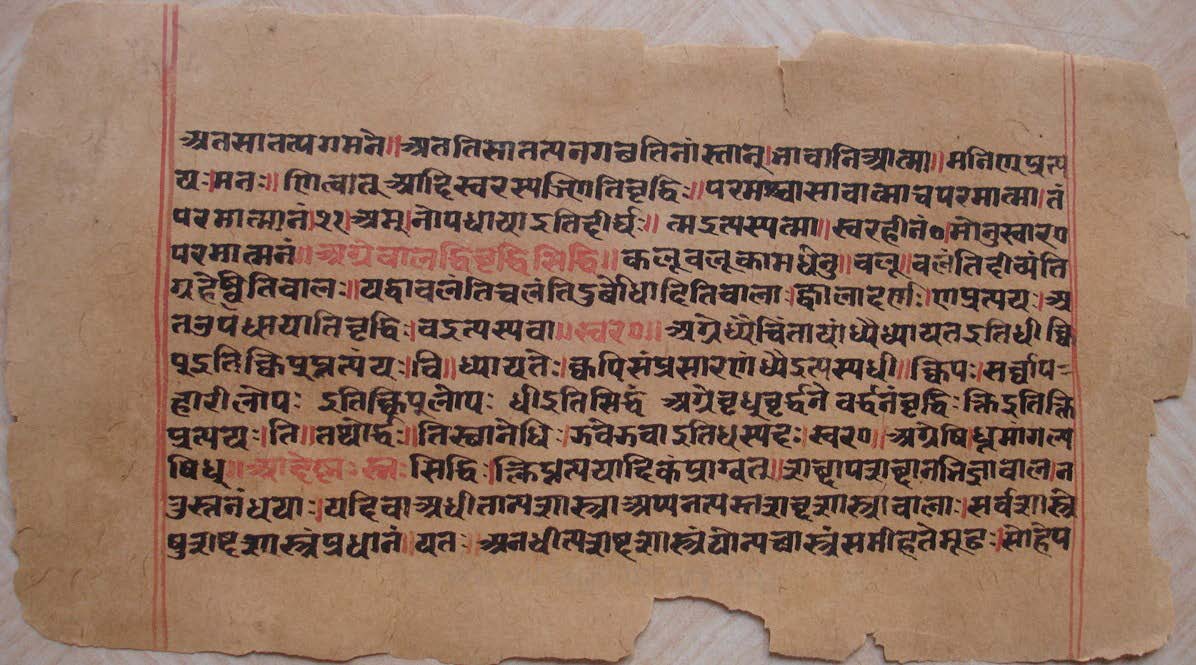 अतसातत्यगमने॥अततिसातत्यनगच्छतिनांस्तान्।भावानिआत्मा॥मतिण्प्रत्य
यः।मनः॥णित्वात् आदिस्वरस्यञ्णितिवृद्धिः॥परमश्चासावात्माचपरमात्मा।तं
परमात्मानं।२१।अम्।नोपधायाऽतिदीर्घः॥त्मऽत्यस्यत्मा॥स्वरहीनं०।मोनुस्वार०
परमात्मनं॥अग्रेबालद्धिवृद्धिसिद्धि॥कलूवलूकामधेनु॥वलू॥वलंतिदीव्यंति
ग्रहेष्वितिबालः॥यद्वावलंतिचलंतिदुर्बोधोदितिबाला।ज्वालादर्णः।णप्रत्ययः।अ
तउपधायाति वृद्धिः।वऽत्यस्यवा॥स्वर०॥अग्रेध्यैचिंतायांध्यैध्यायतऽतिधी क्वि
पुऽतिक्विपुप्रत्ययः।वी॥ध्यायतेः।क्वपिसंप्रसारणंध्यैऽत्यस्यधी॥क्विपः।सर्व्वाप-
हारीलोपः ऽतिक्विपुलोपः धीऽतिसिद्धं अग्रेवृधुवृर्द्धने वर्द्धनंवृद्धिः क्तिऽतिक्ति
प्रत्ययः।ति॥तथोर्द्धः॥तिस्थानेधि।झबेझबाऽतिधस्यदः।स्वर०॥अग्रेषिधूमांगल्य
षिधु॥आदेष्टाः स्नः सिद्धि।क्तिप्रत्ययादिकंप्राग्वत्॥शब्दापशब्दानभिज्ञाबालान
तुस्तनंधयाः।यदिवाअधीतान्यशास्त्राअप्यनत्यस्तशब्दशास्त्राबाला।सर्वशास्त्रे
षुशब्दशास्त्रंप्रधानं।यतः अनधीत्यशब्दशास्त्रंयोन्यच्छास्त्रंसमीहतेमूढः।सोहेप